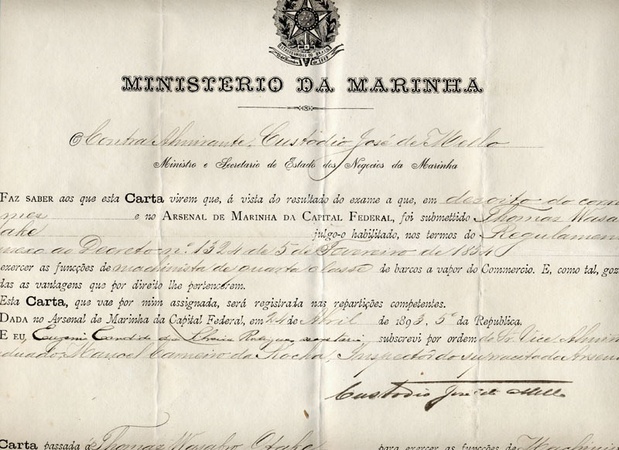 MINISTERIO DA MARINHA
O Contra Almirante, Custodio José de Mello
Ministro e Secretario de Estado dos Negocios da Marinha
FAZ SABER aos que esta Carta virem que, á vista do resultado do exame a que, em desoito do corren
mez e no ARSENAL DE MARINHA DA CAPITAL FEDERAL, foi submettido Thomaz Wasa
take julgo-o habilitado, nos termos do Regulamen
nexo ao Decreto nº 1324 de 5 de Fevereiro de 1854
exercer as funcções de machinista de quarta classe de barcos a vapor do Commercio. E, como tal, goz
das as vantagens que por direito lhe pertencerem.
Esta Carta, que vae por mim assignada, será registrada nas repartições competentes.
DADA no Arsenal de Marinha da Capital Federal, em 24 de Abril de 1893, 5º da Republica.
E EU Eugenio Candido da Silveira Rodrigues, secretario, subscrevi por ordem do Sr. Vice Almiran
duado Manoel Carneiro da Rocha, Inspector do Arsen
Custodio José de Mello
Carta passada a Thomaz Wasabro Otake para exercer as funcções de Machini